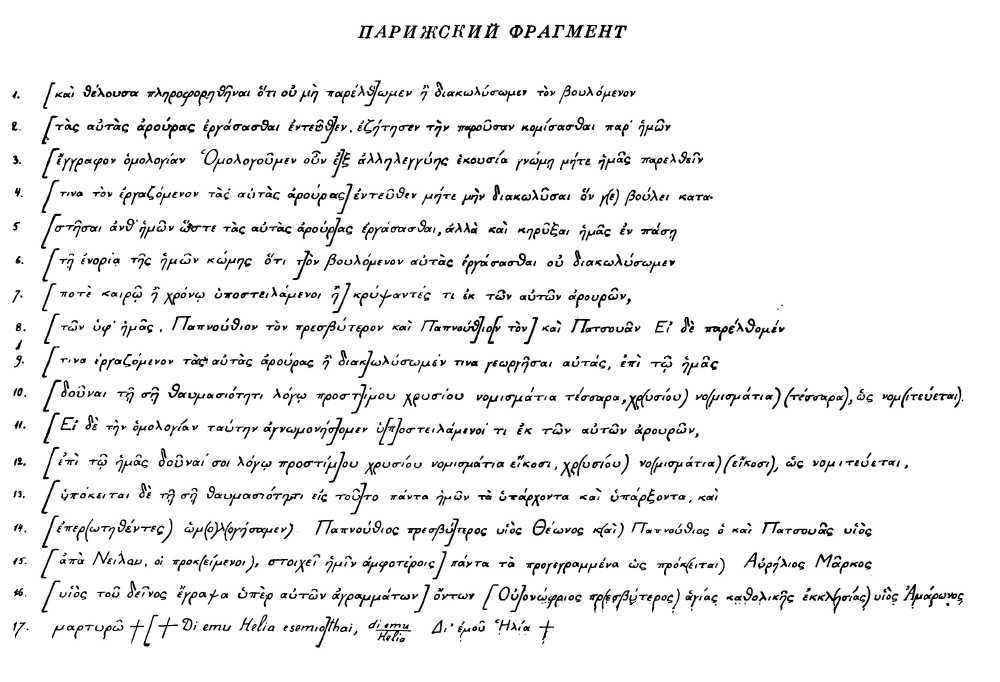 ПАРИЖСКИЙ ФРАГМЕНТ
1. [καὶ θέλουσα πληροφορηθῆναι ὅτι οὐ μὴ παρέλθ]ωμεν ἢ διακωλύσωμεν τὸν βουλόμενον
2. [τὰς αὐτὰς ἀρούρας ἐργάσασθαι ἐντεῦθ]εν, ἐζήτησεν τὴν παροῦσαν κομίσασθαι παρ' ἡμῶν
3. [ἔγγραφον ὁμολογίαν Ὁμολογοῦμεν οὖν ἐ]ξ ἀλληλεγγύης ἑκουσίᾳ γνώμῃ μήτε ἡμᾶς παρελθεῖν
4. [τινα τὸν ἐργαζόμενον τὰς αὐτὰς ἀρούρας] ἐντεῦθεν μήτε μὴν διακωλῦσαι ὅν γ(ε) βούλει κατα-
5 [στῆσαι ἀνθ' ἡμῶν ὥστε τὰς αὐτὰς ἀρούρ]ας ἐργάσασθαι, ἀλλὰ καὶ κηρῦξαι ἡμᾶς ἐν πάσῃ
6. [τῇ ἐνορίᾳ τῆς ἡμῶν κώμης ὅτι τ]ὸν βουλόμενον αὐτὰς ἐργάσασθαι οὐ διακωλύσωμεν
7. [ποτὲ καιρῷ ἢ χρόνῳ ὑποστειλάμενοι ἢ] κρύψαντές τι ἐκ τῶν αὐτῶν ἀρουρῶν,
8. [τῶν ὑφ' ἡμᾶς, Παπνούθιον τὸν πρεσβύτερον καὶ Παπνούθ]ιο[ν τὸν] καὶ Πατσουᾶν Εἰ δὲ παρέλθομέν
9. [τινα ἐργαζόμενον τὰς αὐτὰς ἀρούρας ἢ διακ]ωλύσωμέν τινα γεωργῆσαι αὐτάς, ἐπὶ τῷ ἡμᾶς
10. [δοῦναι τῇ σῇ θαυμασιότητι λόγῳ προστ]ίμου χρυσίου νομισμάτια τέσσαρα, χρ(υσίου) νο(μισμάτια) (τέσσαρα), ὡς νομ(ιτεύεται).
11. [Εἰ δὲ τὴν ὁμολογίαν ταύτην ἀγνωμονήσ]ομεν ὑ[π]οστειλάμενοί τι ἐκ τῶν αὐτῶν ἀρουρῶν,
12. [ἐπὶ τῷ ἡμᾶς δοῦναί σοι λόγῳ προστίμ]ου χρυσίου νομισμάτια εἴκοσι, χρ(υσίου) νο(μισμάτια) (εἴκοσι), ὡς νομιτεύεται,
13. [ὑπόκειται δὲ τῇ σῇ θαυμασιότητι εἰς τοῦ]το πάντα ἡμῶν τὰ ὑπάρχοντα καὶ ὑπάρξοντα, καὶ
14. [ἐπερ(ωτηθέντες) ὡμ(ο)λ(ογήσαμεν) Παπνούθιος πρεσβύ]τερος υἱὸς Θέωνος κ(αὶ) Παπνούθιος ὁ καὶ Πατσουᾶς υἱὸς
15. [ἀπὰ Νείλου, οἱ προκ(είμενοι), στοιχεῖ ἡμῖν ἀμφοτέροις] πάντα τὰ προγεγραμμένα ὡς πρόκ(ειται) Αὐρήλιος Μᾶρκος
16. [υἱὸς τοῦ δεῖνος ἔγραψα ὑπὲρ αὐτῶν ἀγραμμάτων] ὄντων [Οὐ]ονώφριος πρ(εσβύτερος) ἁγίας καθολικῆς ἐκκλησίας) υἱὸς Ἀμάρωνος
17. μαρτυρῶ +[+ Di emu Helia esemio]thai, di emu Helia Δι' ἐμοῦ Ἡλία +